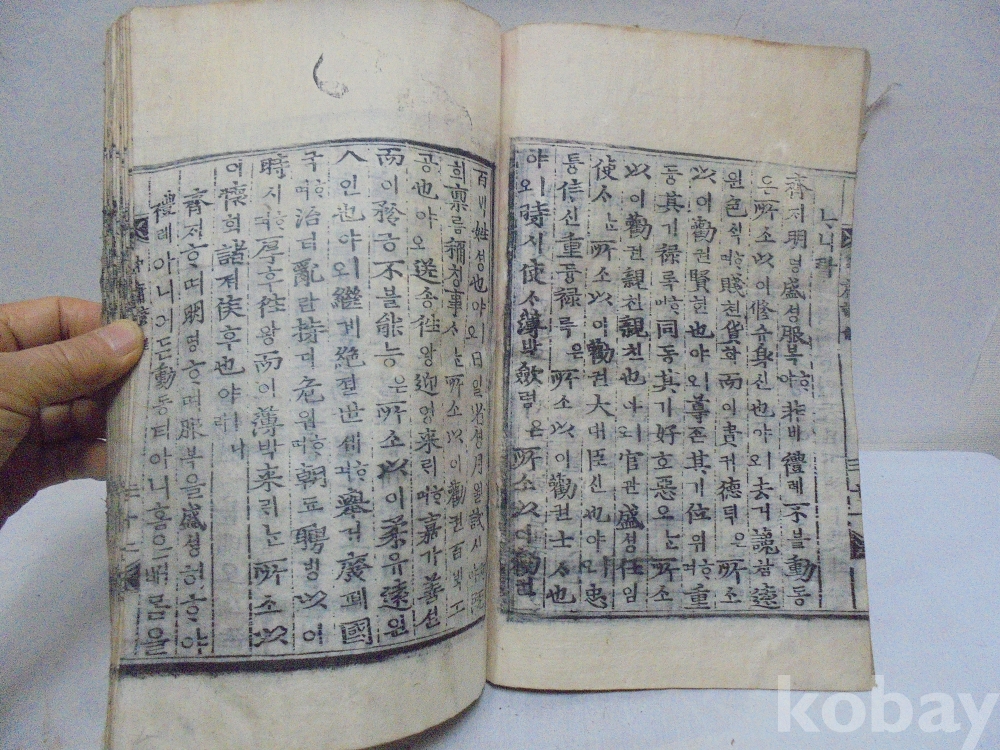 ᄂᆞ니라
齊ᄌᆡ明명盛셩服복ᄒᆞ야非비禮례不블動동
은所소以이修슈身신也야ㅣ오去거讒참遠
원色ᄉᆡᆨᄒᆞ며賤쳔貨화而이貴귀德덕은所소
以이勸권賢현也야ㅣ오尊존其기位위ᄒᆞ며重
듕其기祿록ᄒᆞ며同동其기好호惡오ᄂᆞᆫ所소
以이勸권親친親친也야ㅣ오官관盛셩任임
使ᄉᆞᄂᆞᆫ所소以이勸권大대臣신也야ㅣ오忠
튱信신重듕祿록은所소以이勸권士ᄉᆞ也
야ㅣ오時시使ᄉᆞ薄박斂렴은所소以이勸권
百ᄇᆡᆨ姓셩也야ㅣ오日일省셩月월試시ᄒᆞ야
희稟름稱칭事ᄉᆞᄂᆞᆫ所소以이勸권百ᄇᆡᆨ工
공也야ㅣ오送송往왕迎영來ᄅᆡᄒᆞ며嘉가善션
而이矜긍不블能능은所소以이柔유遠원
人인也야ㅣ오繼계絶졀世셰ᄒᆞ며擧거廢폐國
국ᄒᆞ며治티亂란持디危위ᄒᆞ며朝됴聘빙以이
時시ᄒᆞ며厚후往왕而이薄박來ᄅᆡᄂᆞᆫ所소以
이懷회諸져侯후也야ㅣ니라
齊ᄌᆡᄒᆞ며明명ᄒᆞ며服복을盛셩히ᄒᆞ야
禮례아니어든動동티아니홈은ᄡᅥ몸을
kobay